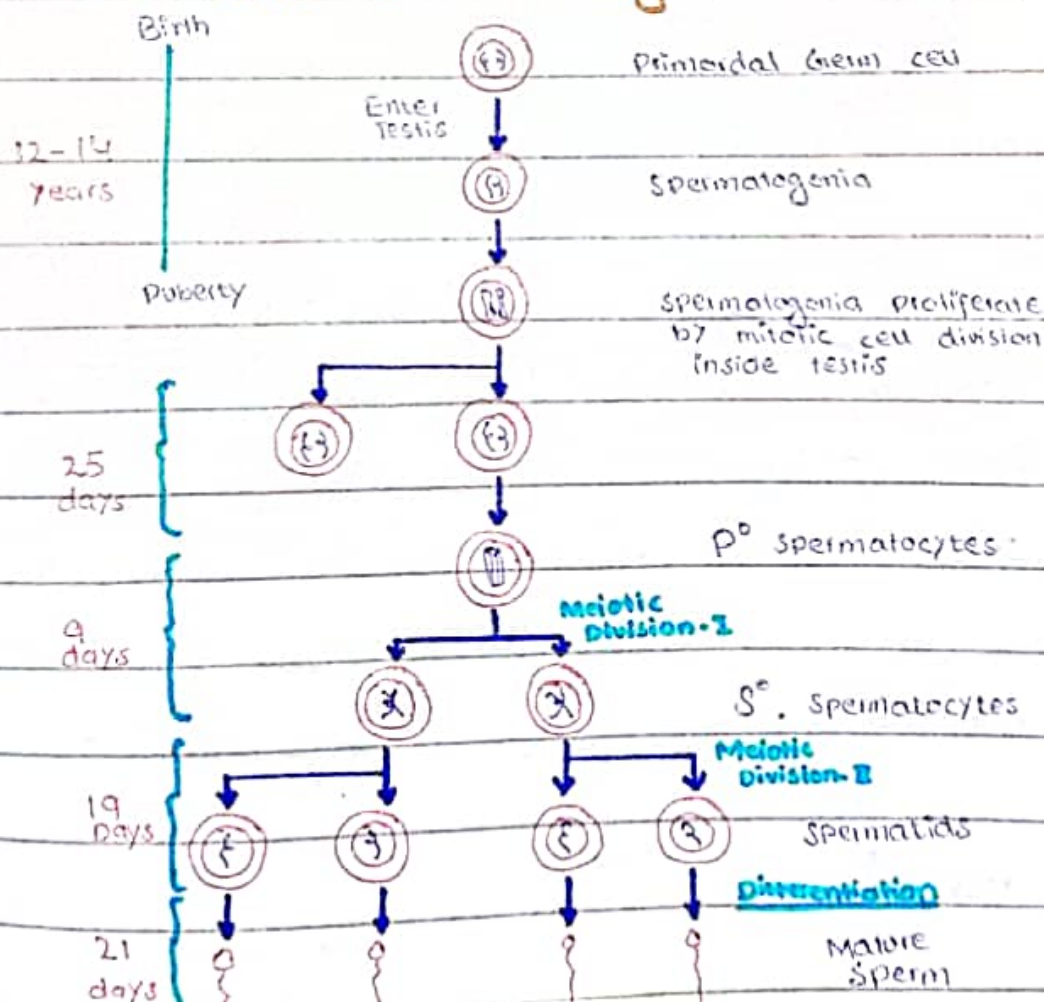 Birth
Primordal Germ cell
Enter
Testis
12-14
years
Spermatogonia
Puberty
Spermatogonia Proliferate
by mitotic cell division
inside testis
25
days
P° Spermatocytes
Meiotic
Division-I
9
days
S°. Spermatocytes
Meiotic
Division-II
19
Days
Spermatids
Differentiation
21
days
Mature
Sperm